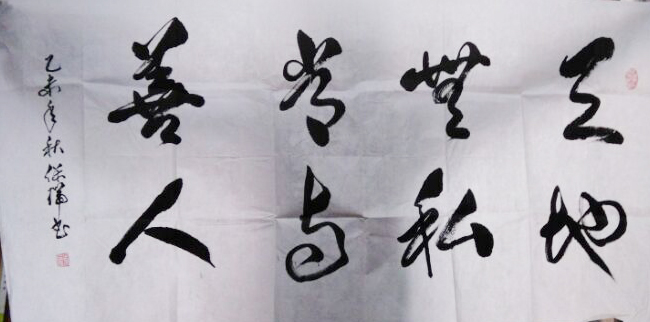 天地
無私
常与
善人
乙未年秋保书